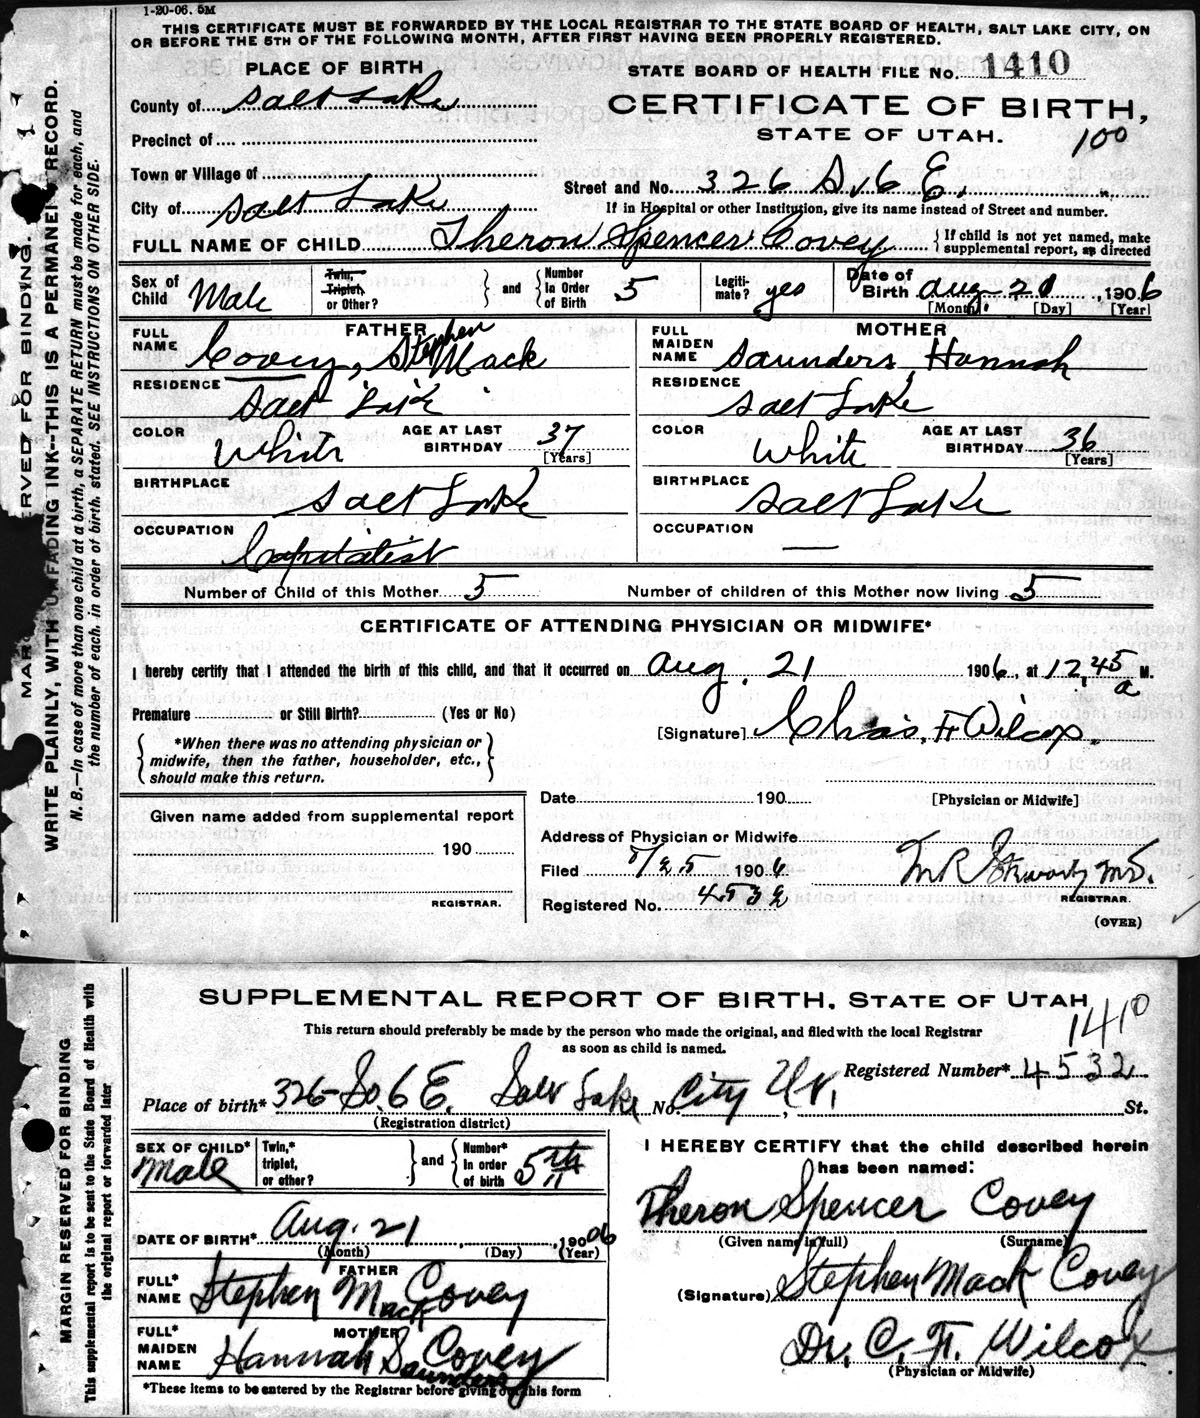 1-20-06. 5M
THIS CERTIFICATE MUST BE FORWARDED BY THE LOCAL REGISTRAR TO THE STATE BOARD OF HEALTH, SALT LAKE CITY, ON
OR BEFORE THE 5TH OF THE FOLLOWING MONTH, AFTER FIRST HAVING BEEN PROPERLY REGISTERED.
PLACE OF BIRTH
STATE BOARD OF HEALTH FILE No. 1410
County of Salt Lake
CERTIFICATE OF BIRTH,
STATE OF UTAH.
100
Precinct of
Town or Village of
Street and No. 326 S. 6 E.
City of Salt Lake
If in Hospital or other Institution, give its name instead of Street and number.
FULL NAME OF CHILD Theron Spencer Covey
{ If child is not yet named, make
supplemental report, as directed
Sex of Child Male
Twin, Triplet, or Other?
and
Number In Order of Birth 5
Legiti- mate? yes
Date of Birth Aug. 21, 1906
[Month] [Day] [Year]
FATHER
FULL NAME Covey, Stephen Mack
MOTHER
FULL MAIDEN NAME Saunders, Hannah
RESIDENCE Salt Lake
RESIDENCE Salt Lake
COLOR White AGE AT LAST BIRTHDAY 37 [Years]
COLOR White AGE AT LAST BIRTHDAY 36 [Years]
BIRTHPLACE Salt Lake
BIRTHPLACE Salt Lake
OCCUPATION Capitalist
OCCUPATION —
Number of Child of this Mother 5
Number of children of this Mother now living 5
CERTIFICATE OF ATTENDING PHYSICIAN OR MIDWIFE*
I hereby certify that I attended the birth of this child, and that it occurred on Aug. 21 1906, at 12,45 a M.
Premature or Still Birth? (Yes or No)
[Signature] Chas. F. Wilcox.
*When there was no attending physician or
midwife, then the father, householder, etc.,
should make this return.
Date 190
[Physician or Midwife]
Given name added from supplemental report
190
REGISTRAR.
Address of Physician or Midwife
Filed 1906
Registered No. 4532
REGISTRAR.
(OVER)
MARGIN RESERVED FOR BINDING.
WRITE PLAINLY, WITH UNFADING INK-THIS IS A PERMANENT RECORD.
N. B.—In case of more than one child at a birth, a SEPARATE RETURN must be made for each, and
the number of each, in order of birth, stated. SEE INSTRUCTIONS ON OTHER SIDE.
SUPPLEMENTAL REPORT OF BIRTH, STATE OF UTAH
1410
This return should preferably be made by the person who made the original, and filed with the local Registrar
as soon as child is named.
Registered Number* 4532
Place of birth* 326-So. 6 E. Salt Lake No. City, Ut. St.
(Registration district)
SEX OF CHILD* Male
Twin,* triplet, or other?
and
Number* In order of birth 5th
I HEREBY CERTIFY that the child described herein
has been named:
Theron Spencer Covey
(Given name in full) (Surname)
DATE OF BIRTH* Aug. 21, 1906
(Month) (Day) (Year)
FATHER
FULL* NAME Stephen Mack Covey
(Signature) Stephen Mack Covey
MOTHER
FULL* MAIDEN NAME Hannah Saunders Covey
Dr. C. F. Wilcox
(Physician or Midwife)
*These items to be entered by the Registrar before giving out this form
MARGIN RESERVED FOR BINDING
This supplemental report is to be sent to the State Board of Health with
the original report or forwarded later